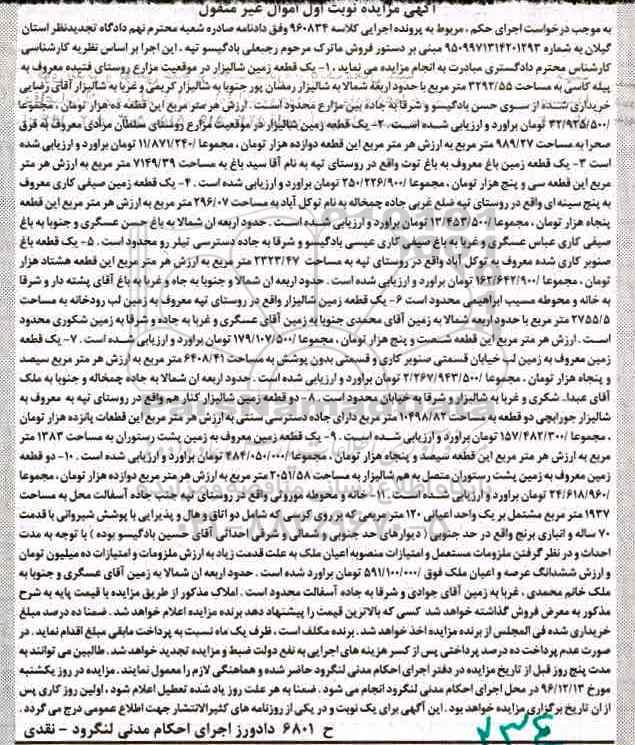 آگهی مزایده نوبت اول اموال غیر منقول
به موجب درخواست اجرای حکم ، مربوط به پرونده اجرایی کلاسه ۹۶۰۸۳۴ وفق دادنامه صادره شعبه محترم نهم دادگاه تجدیدنظر استان
گیلان به شماره ۹۵۰۹۹۷۱۳۱۴۲۰۱۲۹۳ مبنی بر دستور فروش ماترک مرحوم رجبعلی بادگیسو تپه ، این اجرا بر اساس نظریه کارشناسی
کارشناس محترم دادگستری مبادرت به انجام مزایده می نماید . ۱- یک قطعه زمین شالیزار در موقعیت مزارع روستای فتیده معروف به
پیله کاسی به مساحت ۳۲۹۲/۵۵ متر مربع با حدود اربعة شمالا به شالیزار رمضان پور جنوبا به شالیزار کریمی و غربا به شالیزار آقای رضایی
خریداری شده از سوی حسن بادگیسو و شرقا به جاده بین مزارع محدود است . ارزش هر متر مربع این قطعه ده هزار تومان ، مجموعا
/۳۲/۹۲۵/۵۰۰ تومان براورد و ارزیابی شده است . ۲- یک قطعه زمین شالیزار در موقعیت مزارع روستای سلطان مرادی معروف به فرق
صحرا به مساحت ۹۸۹/۲۷ متر مربع به ارزش هر متر مربع این قطعه دوازده هزار تومان ، مجموعا /۱۱/۸۷۱/۲۴۰ تومان براورد و ارزیابی شده
است ۳- یک قطعه زمین باغ معروف به باغ توت واقع در روستای تپه به نام آقا سید باغ به مساحت ۷۱۴۹/۳۹ متر مربع به ارزش هر متر
مربع این قطعه سی و پنج هزار تومان ، مجموعا /۲۵۰/۲۲۶/۹۰۰ تومان براورد و ارزیابی شده است . ۴- یک قطعه زمین صیفی کاری معروف
به پنج سینه ای واقع در روستای تپه ضلع غربی جاده چمخاله به نام توکل آباد به مساحت ۲۹۶/۰۷ متر مربع به ارزش هر متر مربع این قطعه
پنجاه هزار تومان ، مجموعا /۱۳/۴۵۳/۵۰۰ تومان براورد و ارزیابی شده است . حدود اربعه ان شمالا به باغ حسن عسگری و جنوبا به باغ
صیفی کاری عباس عسگری و غربا به باغ صیفی کاری عیسی بادگیسو و شرقا به جاده دسترسی تیلر رو محدود است . ۵- یک قطعه باغ
صنوبر کاری شده معروف به توکل آباد واقع در روستای تپه به مساحت ۲۳۲۳/۴۷ متر مربع به ارزش هر متر مربع این قطعه هشتاد هزار
تومان ، مجموعا /۱۶۲/۶۴۲/۹۰۰ تومان براورد و ارزیابی شده است . حدود اربعه ان شمالا و جنوبا به چاه و غربا به باغ آقای پشته دار و شرقا
به خانه و محوطه مسیب ابراهیمی محدود است ۶- یک قطعه زمین شالیزار واقع در روستای تپه معروف به زمین لب رودخانه به مساحت
۲۷۵۵/۵ متر مربع با حدود اربعه شمالا به زمین آقای محمدی جنوبا به زمین آقای عسگری و غربا به جاده و شرقا به زمین شکوری محدود
است . ارزش هر متر مربع این قطعه شصت و پنج هزار تومان ، مجموعا /۱۷۹/۱۰۷/۵۰۰ تومان براورد و ارزیابی شده است . ۷- یک قطعه
زمین معروف به زمین لب خیابان قسمتی صنوبر کاری و قسمتی بدون پوشش به مساحت ۶۴۰۸/۴۱ متر مربع به ارزش هر متر مربع سیصد
و پنجاه هزار تومان ، مجموعا /۲/۲۶۷/۹۴۳/۵۰۰ تومان براورد و ارزیابی شده است . حدود اربعه ان شمالا به جاده چمخاله و جنوبا به ملک
آقای عبدا... شکری و غربا به شالیزار و شرقا به خیابان محدود است . ۸- دو قطعه زمین شالیزار کنار هم واقع در روستای تپه به معروف به
شالیزار جورابچی دو قطعه به مساحت ۱۰۴۹۸/۸۲ متر مربع دارای جاده دسترسی سنتی به ارزش هر متر مربع این قطعات پانزده هزار تومان
، مجموعا /۱۵۷/۴۸۲/۳۰۰ تومان براورد و ارزیابی شده است . ۹- یک قطعه زمین معروف به زمین پشت رستوران به مساحت ۱۳۸۳ متر
مربع به ارزش هر متر مربع این قطعه سیصد و پنجاه هزار تومان ، مجموعا /۴۸۴/۰۵۰/۰۰۰ تومان براورد و ارزیابی شده است . ۱۰- دو قطعه
زمین معروف به زمین پشت رستوران متصل به هم شالیزار به مساحت ۲۰۵۱/۵۸ متر مربع به ارزش هر متر مربع دوازده هزار تومان ، مجموعا
/۲۴/۶۱۸/۹۶۰ تومان براورد و ارزیابی شده است . ۱۱- خانه و محوطه موروثی واقع در روستای تپه جنب جاده آسفالت محل به مساحت
۱۹۳۷ متر مربع مشتمل بر یک واحد اعیانی ۱۲۰ متر مربعی که روی کرسی که شامل دو اتاق و هال و پذیرایی با پوشش شیروانی با قدمت
۷۰ ساله و انباری برنج واقع در حد جنوبی ( دیوارهای حد جنوبی و شمالی و شرقی احداثی آقای حسین بادگیسو بوده ) با توجه به مدت
احداث و در نظر گرفتن ملزومات مستعمل و امتیازات منصوبه اعیان ملک به علت قدمت زیاد به ارزش ملزومات و امتیازات ده میلیون تومان
و ارزش ششدانگ عرصه و اعیان ملک فوق /۵۹۱/۱۰۰/۰۰۰ تومان براورد شده است . حدود اربعه ان شمالا به زمین آقای عسگری و جنوبا به
ملک خانم محمدی ، غربا به زمین آقای جوادی و شرقا به جاده آسفالت محدود است . املاک مذکور از طریق مزایده با قیمت پایه به شرح
مذکور به معرض فروش گذاشته خواهد شد کسی که بالاترین قیمت را پیشنهاد دهد برنده مزایده اعلام خواهد شد . ضمنا ده درصد مبلغ
خریداری شده فی المجلس از برنده مزایده اخذ خواهد شد . برنده مکلف است ، ظرف یک ماه نسبت به پرداخت مابقی مبلغ اقدام نماید . در
صورت عدم پرداخت ده درصد پرداختی پس از کسر هزینه های اجرایی به نفع دولت ضبط و مزایده تجدید خواهد شد . طالبین می توانند به
مدت پنج روز قبل از تاریخ مزایده در دفتر اجرای احکام مدنی لنگرود حاضر شده و هماهنگی لازم را معمول نمایند . مزایده در روز یکشنبه
مورخ ۹۶/۱۲/۱۳ در محل اجرای احکام مدنی لنگرود انجام می شود . ضمنا به هر علت روز یاد شده تعطیل اعلام شود ، اولین روز کاری پس
از ان تاریخ برگزاری مزایده خواهد بود . این آگهی برای یک نوبت و در یکی از روزنامه های کثیرالانتشار جهت اطلاع عمومی درج می گردد .
ح ۶۸۰۱ دادورز اجرای احکام مدنی لنگرود - نقدی